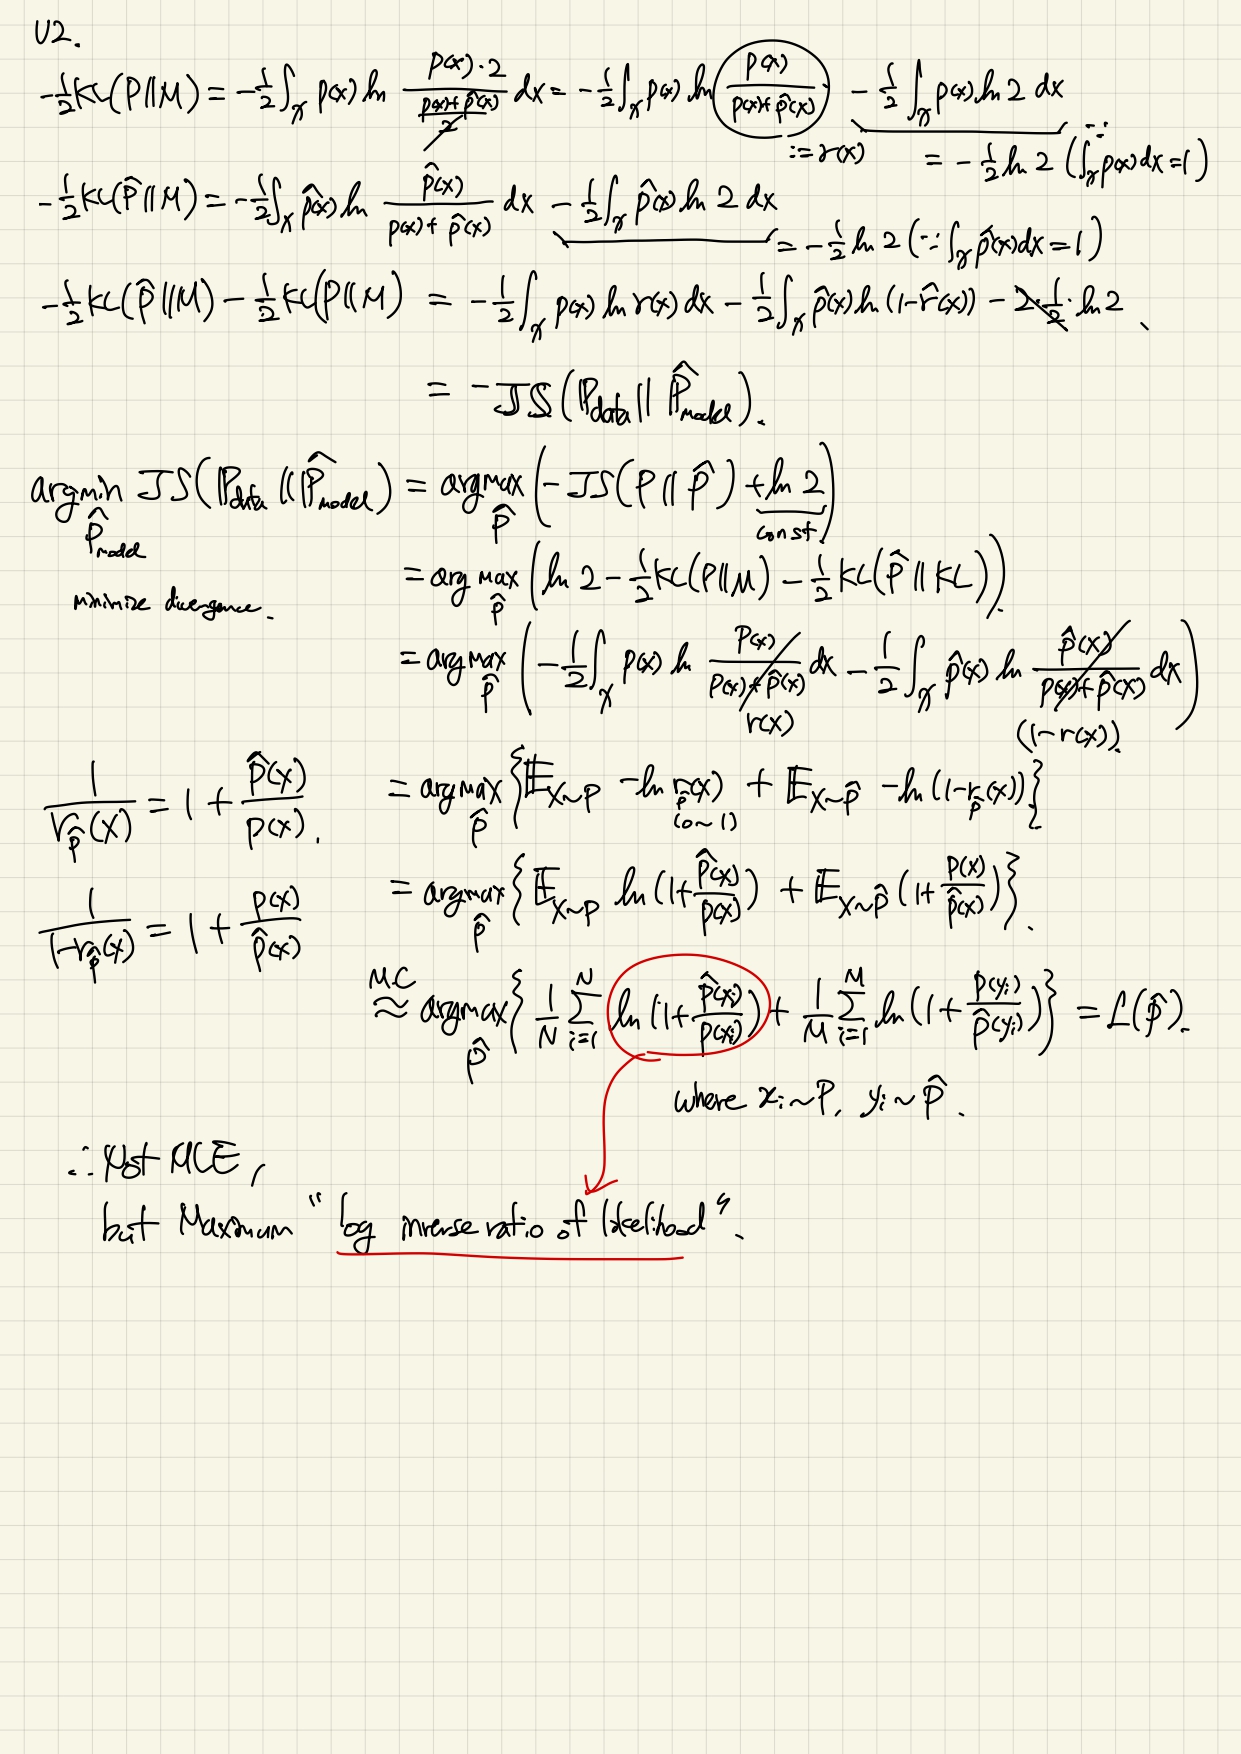 U2.
-1/2 KL(P||M) = -1/2 ∫_χ p(x) ln (p(x)·2)/((p(x)+p̂(x))/2) dx = -1/2 ∫_χ p(x) ln p(x)/(p(x)+p̂(x)) - 1/2 ∫_χ p(x) ln 2 dx
:= r(x) = -1/2 ln 2 (∵ ∫_χ p(x)dx = 1)
-1/2 KL(P̂||M) = -1/2 ∫_χ p̂(x) ln p̂(x)/(p(x)+p̂(x)) dx - 1/2 ∫_χ p̂(x) ln 2 dx
= -1/2 ln 2 (∵ ∫_χ p̂(x)dx = 1)
-1/2 KL(P̂||M) - 1/2 KL(P||M) = -1/2 ∫_χ p(x) ln r(x) dx - 1/2 ∫_χ p̂(x) ln (1-r̂(x)) - 2·1/2·ln 2
= -JS(ℙ_data || ℙ̂_model).
argmin_{P̂_model} JS(ℙ_data || ℙ̂_model) = argmax_{P̂} (-JS(P||P̂) + ln 2)
const.
minimize divergence.
= arg max_{P̂} (ln 2 - 1/2 KL(P||M) - 1/2 KL(P̂||KL)).
= arg max_{P̂} (-1/2 ∫_χ p(x) ln p(x)/(p(x)+p̂(x)) dx - 1/2 ∫_χ p̂(x) ln p̂(x)/(p(x)+p̂(x)) dx)
r(x) (1-r(x)).
1/r_p̂(x) = 1 + p̂(x)/p(x).
= argmax_{P̂} {𝔼_{X~P} -ln r_p̂(x) + 𝔼_{X~P̂} -ln(1-r_p̂(x))}
(0~1)
1/(1-r_p̂(x)) = 1 + p(x)/p̂(x)
= argmax_{P̂} {𝔼_{X~P} ln (1+p̂(x)/p(x)) + 𝔼_{X~P̂} (1+p(x)/p̂(x))}.
M.C
≈ argmax_{P̂} {1/N Σ_{i=1}^N ln (1+p̂(xi)/p(xi)) + 1/M Σ_{i=1}^M ln (1+p(yi)/p̂(yi))} = ℒ(p̂).
where xi ~ P, yi ~ P̂.
∴ Not MLE,
but Maximum "log inverse ratio of likelihood".